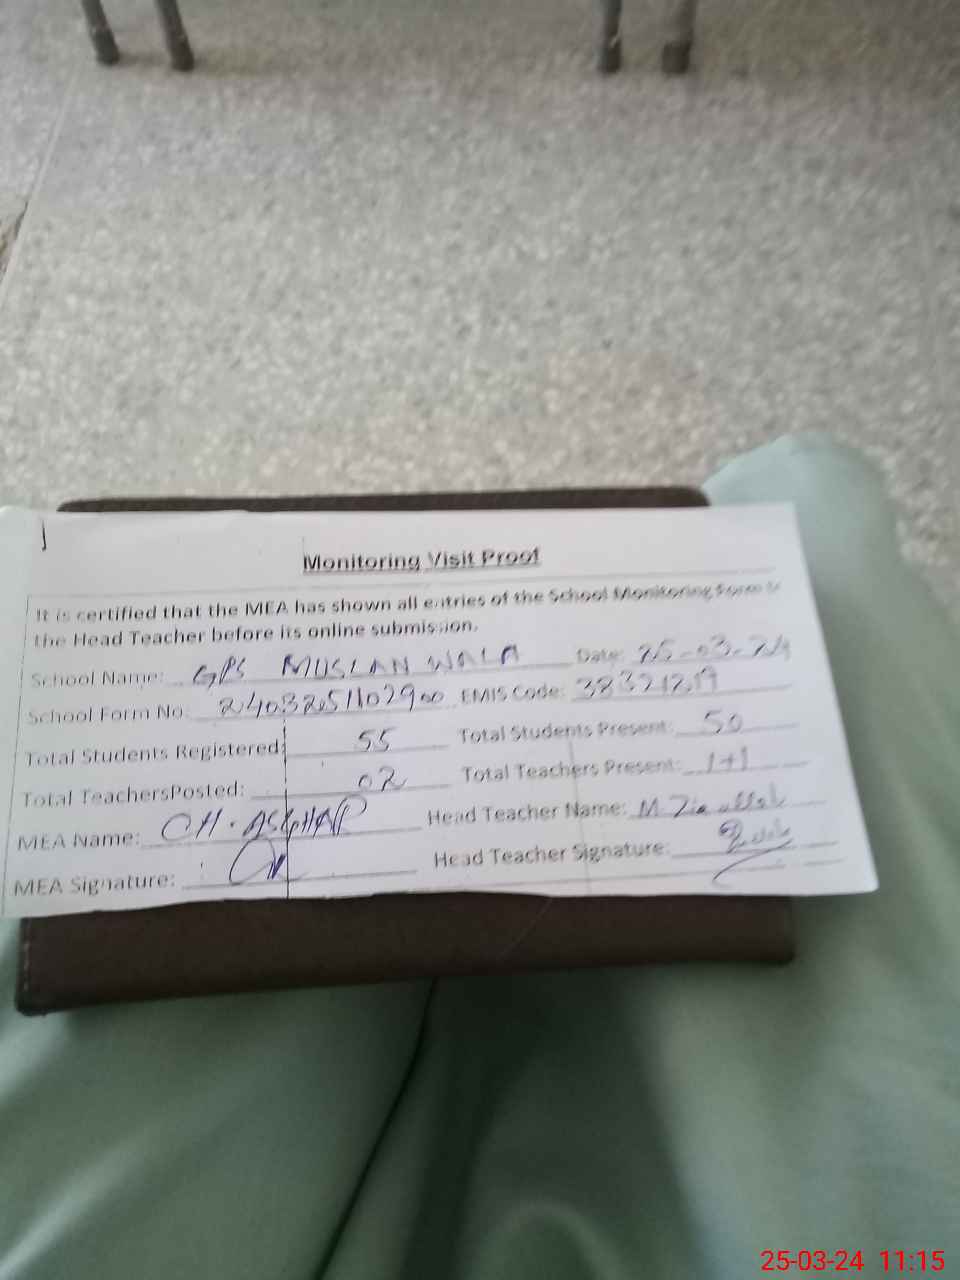 Monitoring Visit Proof
It is certified that the MEA has shown all entries of the School Monitoring Form to
the Head Teacher before its online submission.
School Name: GPS MUSLAN WALA Date: 25-03-24
School Form No: 2403251102900 EMIS Code: 38321219
Total Students Registered: 55 Total Students Present: 50
Total TeachersPosted: 02 Total Teachers Present: 1+1
MEA Name: CH. ASGHAR Head Teacher Name: M. Zia ullah
MEA Signature: Head Teacher Signature:
25-03-24 11:15